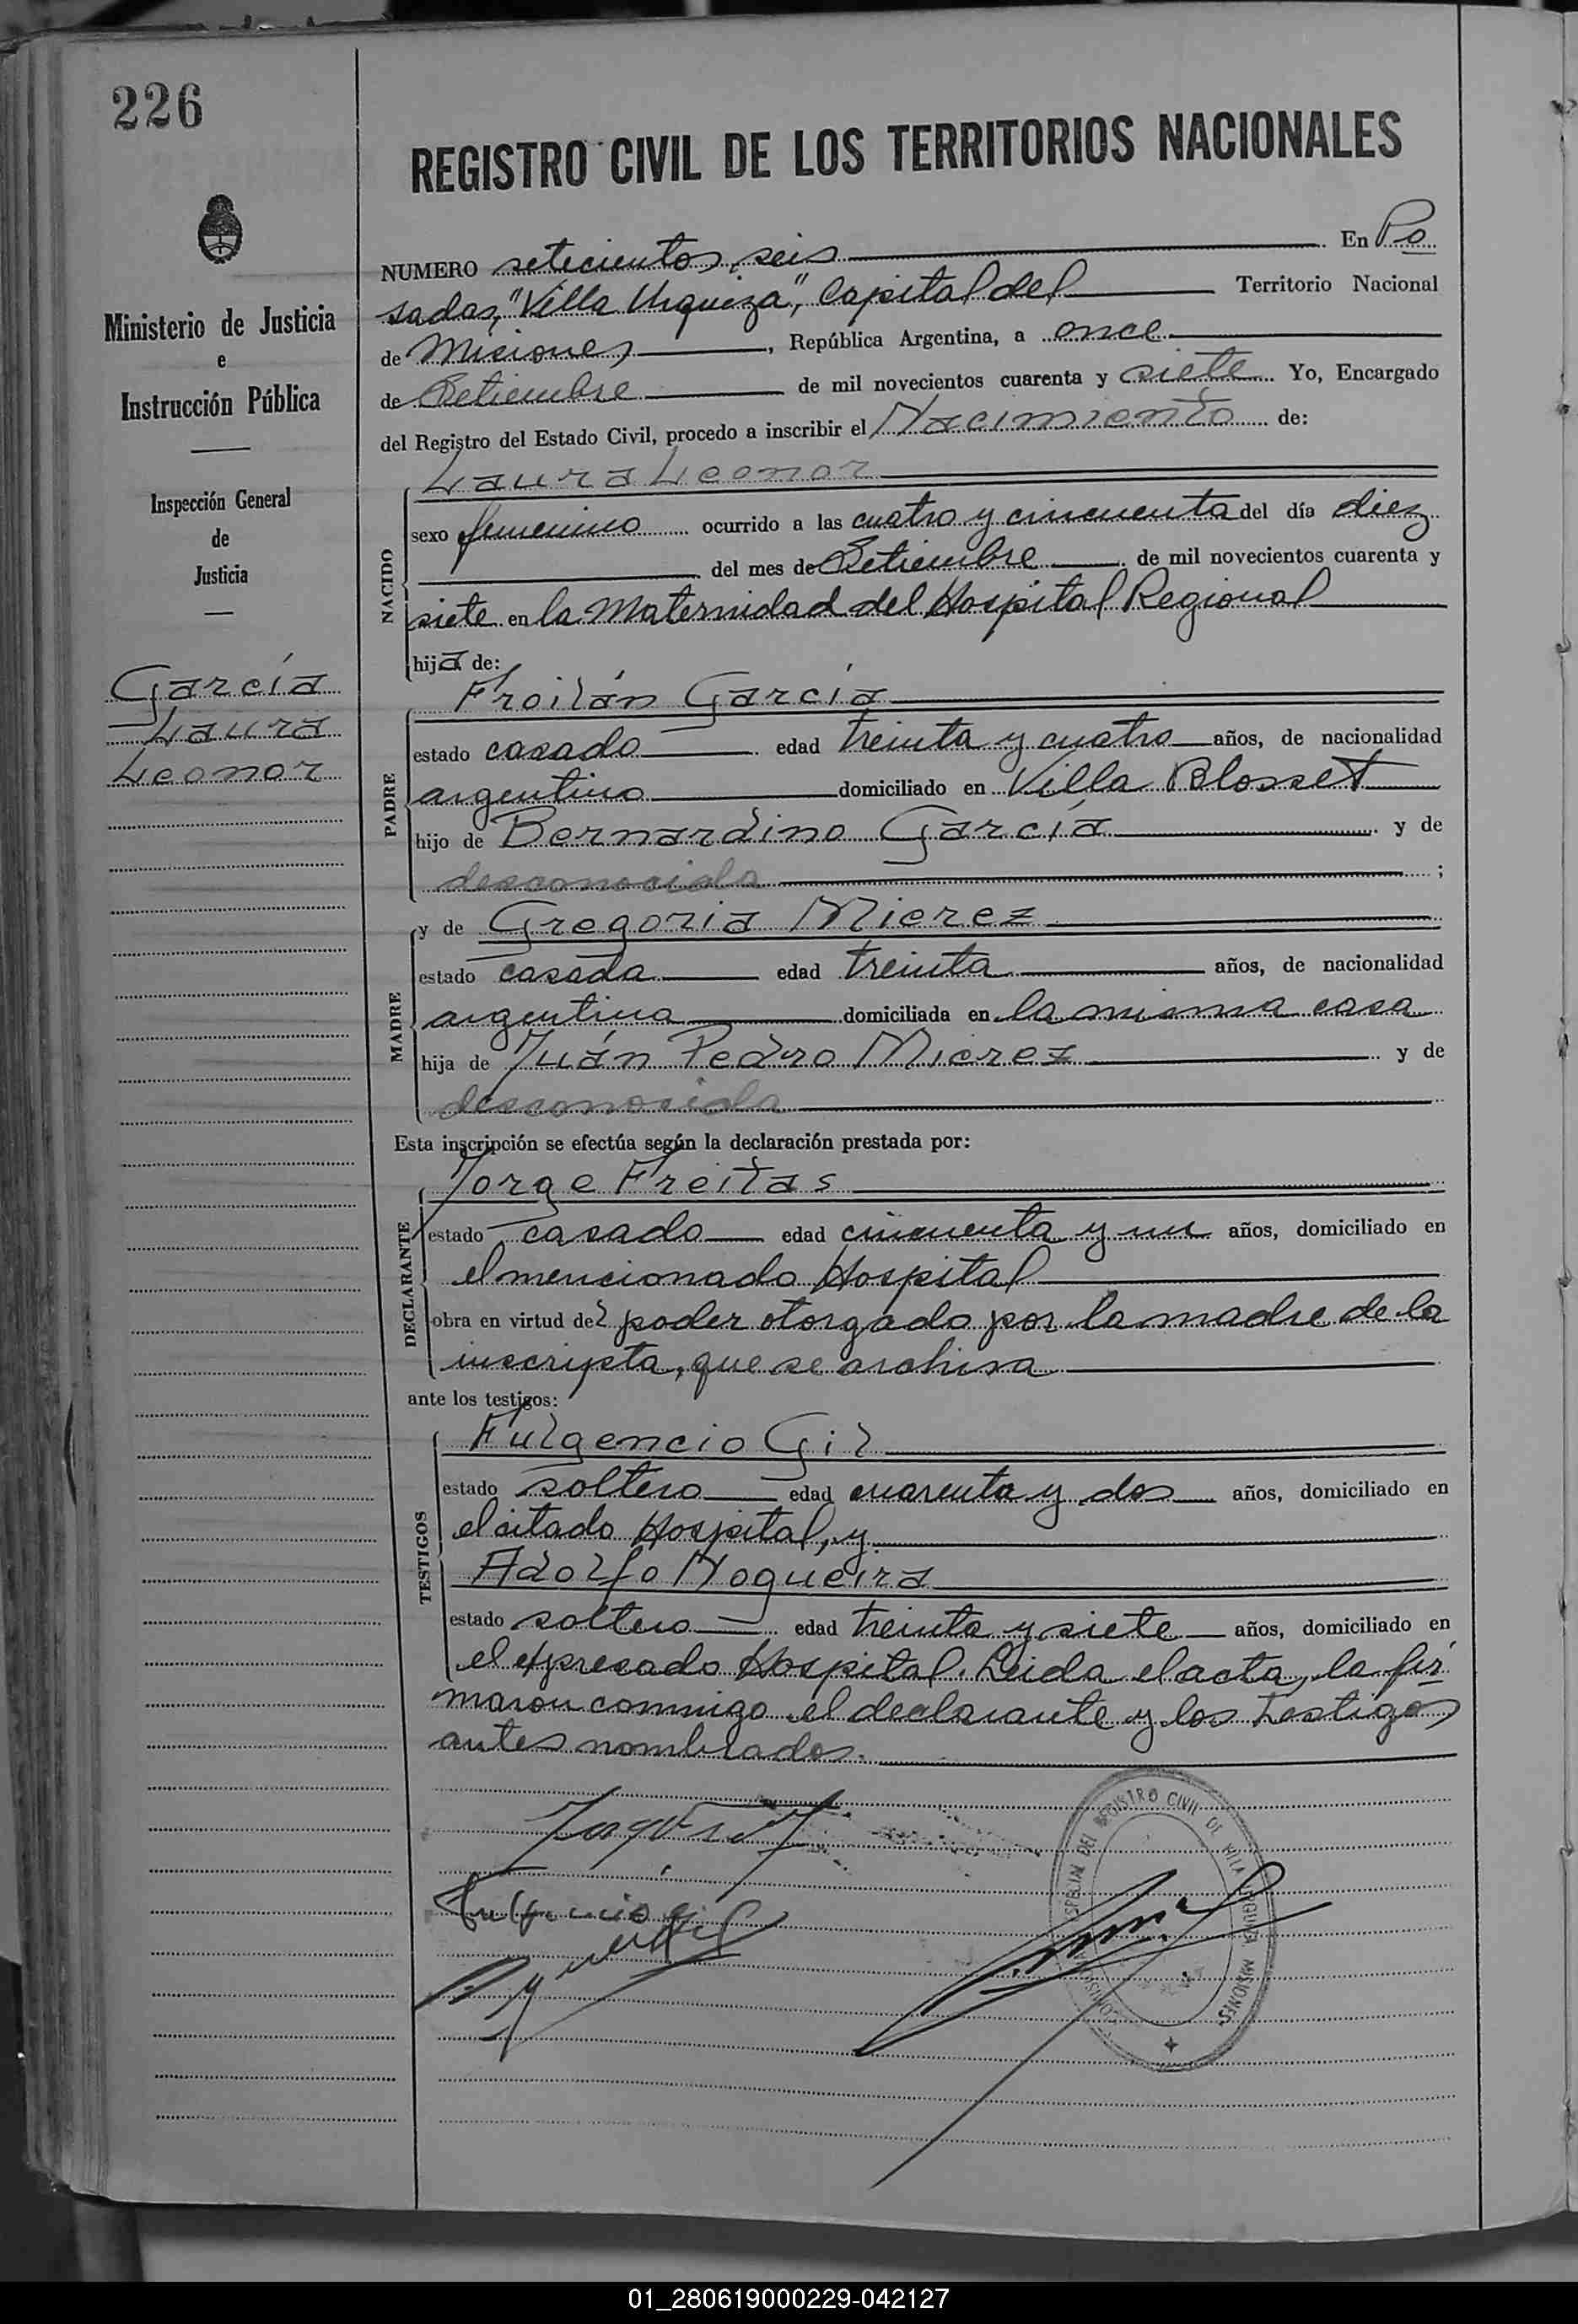 226
REGISTRO CIVIL DE LOS TERRITORIOS NACIONALES
Ministerio de Justicia
e
Instrucción Pública
Inspección General
de
Justicia
García
Laura
Leonor
NUMERO setecientos seis En Po
sadas, "Villa Urquiza", Capital del Territorio Nacional
de Misiones, República Argentina, a once
de Setiembre de mil novecientos cuarenta y siete Yo, Encargado
del Registro del Estado Civil, procedo a inscribir el Nacimiento de:
NACIDO
Laura Leonor
sexo femenino ocurrido a las cuatro y cincuenta del día diez
del mes de Setiembre de mil novecientos cuarenta y
siete en la Maternidad del Hospital Regional
hija de:
PADRE
Froilán García
estado casado edad treinta y cuatro años, de nacionalidad
argentino domiciliado en Villa Blosset
hijo de Bernardino García y de
desconocida ;
MADRE
y de Gregoria Mierez
estado casada edad treinta años, de nacionalidad
argentina domiciliada en la misma casa
hija de Juán Pedro Mierez y de
desconocida
Esta inscripción se efectúa según la declaración prestada por:
DECLARANTE
Jorge Freitas
estado casado edad cincuenta y un años, domiciliado en
el mencionado Hospital
obra en virtud del poder otorgado por la madre de la
inscripta, que se archiva
ante los testigos:
TESTIGOS
Fulgencio Gil
estado soltero edad cuarenta y dos años, domiciliado en
el citado Hospital, y
Adolfo Nogueira
estado soltero edad treinta y siete años, domiciliado en
el expresado Hospital. Leida el acta, la fir
maron conmigo el declarante y los testigos
antes nombrados.
REGISTRO CIVIL DE VILLA URQUIZA MISIONES
Fulgencio Gil
01_280619000229-042127